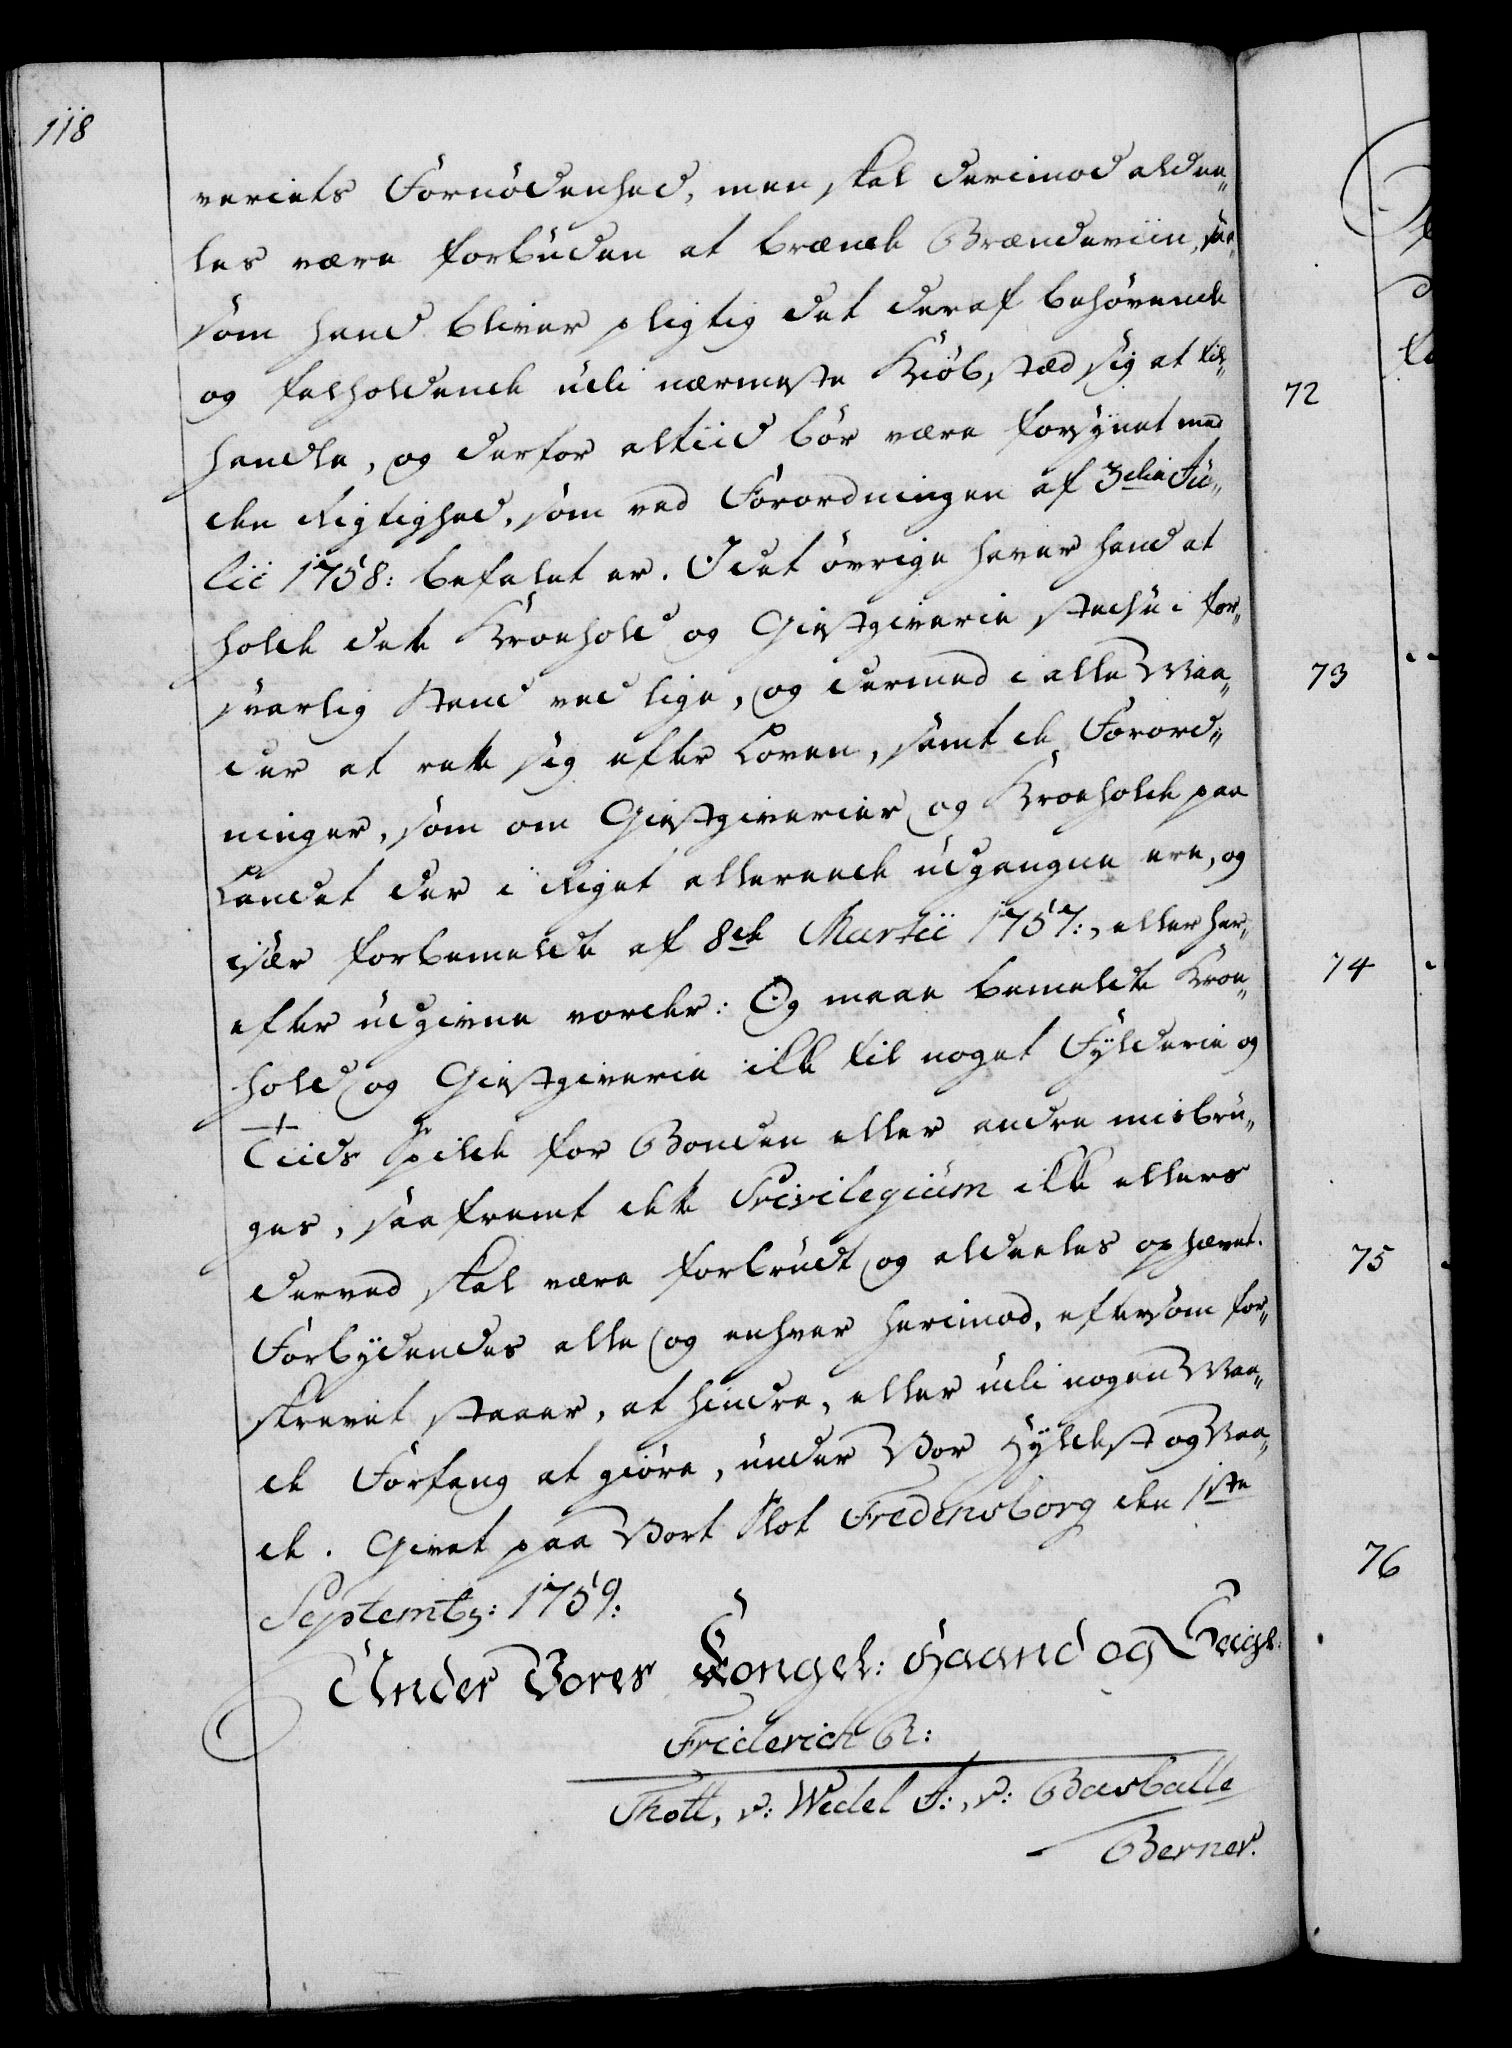 118
veriets Fornödenhed, men skal derimod aldee„
les være forbuden at brænde Brændeviin, saa„
som hand bliver pligtig det deraf behövende
og falholdende udi nærmeste Kiöbstæd sig at til„
handle, og derfor altiid bör være forsÿnet med
den Rigtighed, som ved Forordningen af 3die Ju„
lii 1758: befalet er. I det övrige haver hand at
holde dette Kroehold og Giestgiverie stedse i for„
svarlig Stand ved lige, og dermed i alle Maa„
der at rette sig efter Loven, samt de Forord„
ninger, som om Giestgiverier og Kroeholde paa
Landet der i Riget allerede udgangne ere, og
især forbemeldte af 8de Martii 1757:, eller her„
efter udgivne vorder: Og maae bemeldte Kroe„
hold og Giestgiverie ikke til noget Fÿlderie og
Tiids Spilde for Bonden eller andre misbru„
ges, saafremt dette Privilegium ikke ellers
derved skal være forbrudt og aldeeles ophævet.
Forbÿdendes alle og enhver herimod, eftersom for„
skrevet staaer, at hindre, eller udi nogen Maa„
de Forfang at giöre, under Vor Hÿldest og Naa„
de. Givet paa Vort Slot Fredensborg den 1ste
Septembr: 1759:
Under Vores Kongel: Haand og Seigl:
Friderich R:
Thott, v: Wedel F:, v: Barballe
Berner.
72
73
74
75
76